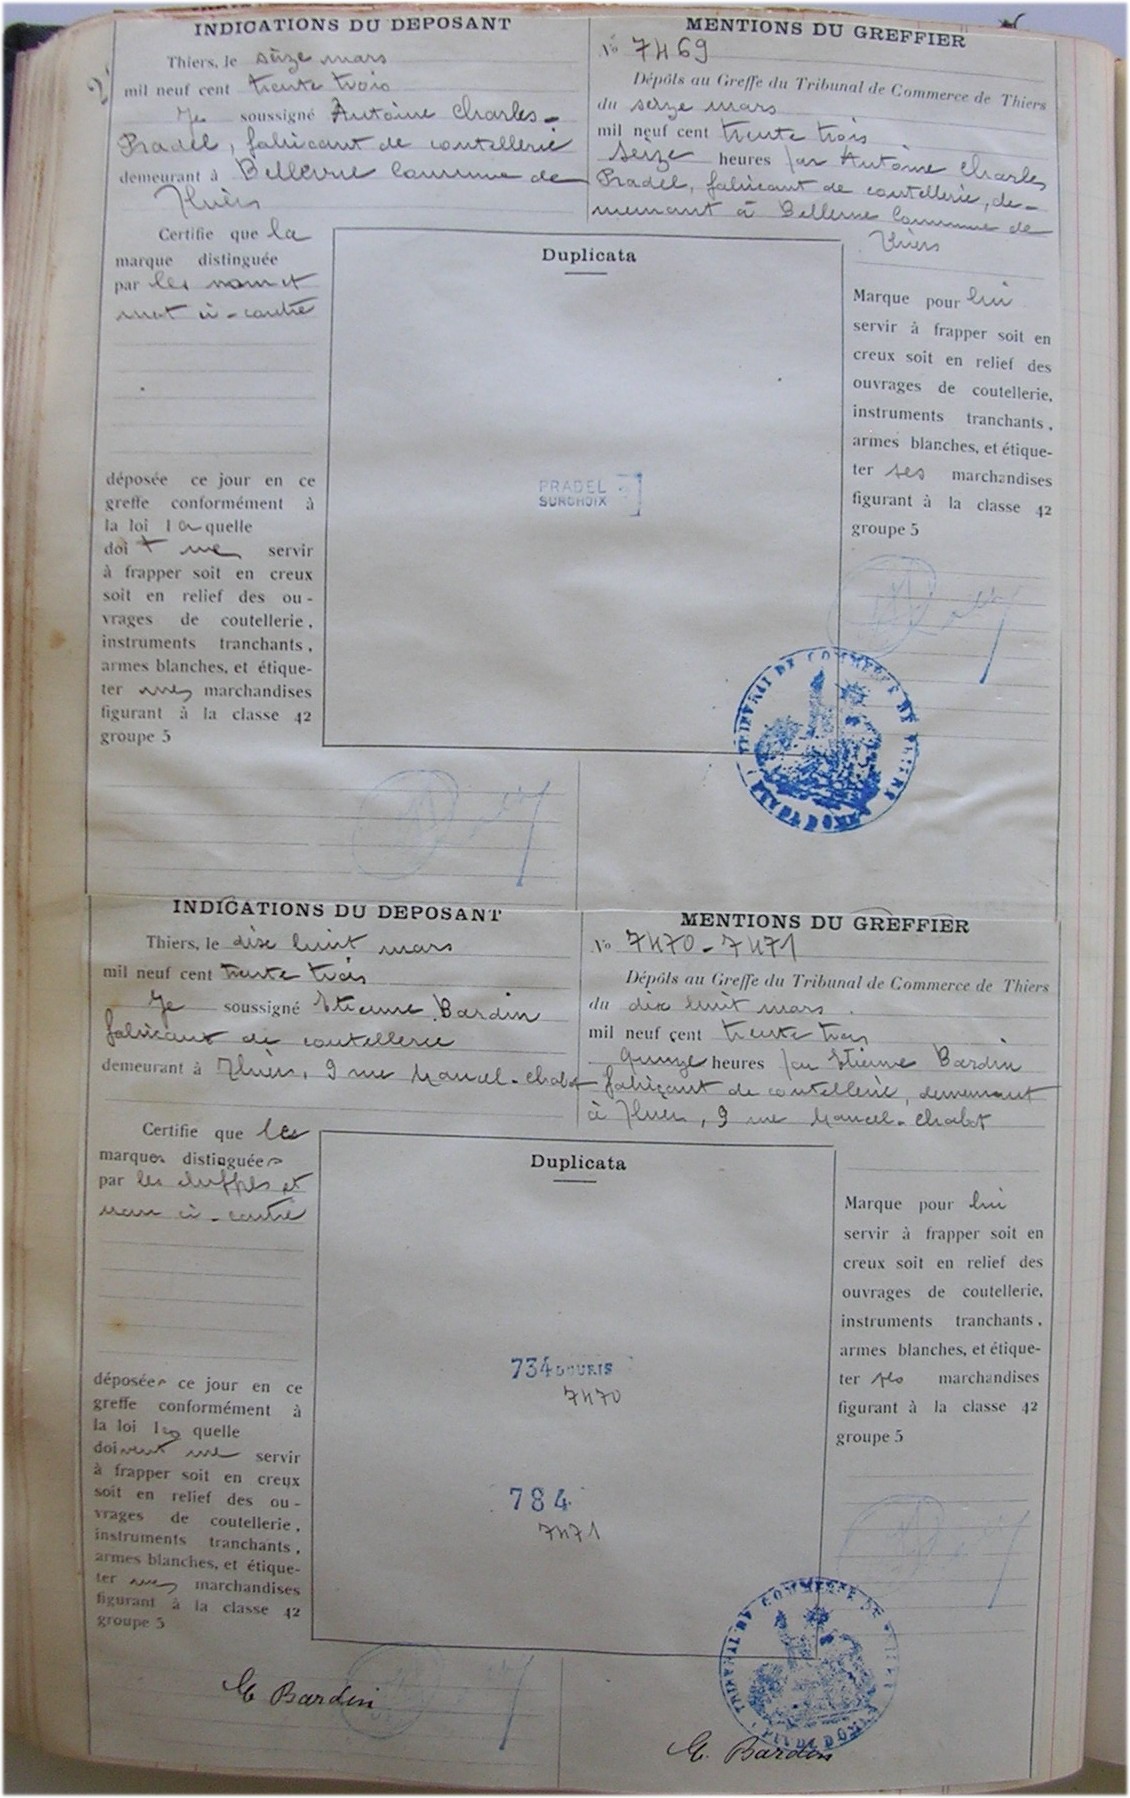 INDICATIONS DU DEPOSANT
Thiers, le seize mars
mil neuf cent trente trois
Je soussigné Antoine Charles-
Pradel, fabricant de coutellerie
demeurant à Bellevue Commune de
Thiers
Certifie que la
marque distinguée
par les nom et
mot ci-contre
déposée ce jour en ce
greffe conformément à
la loi la quelle
doit me servir
à frapper soit en creux
soit en relief des ou-
vrages de coutellerie,
instruments tranchants,
armes blanches, et étique-
ter mes marchandises
figurant à la classe 42
groupe 5
Duplicata
PRADEL
SURCHOIX
MENTIONS DU GREFFIER
No 7469
Dépôts au Greffe du Tribunal de Commerce de Thiers
du seize mars
mil neuf cent trente trois
seize heures par Antoine Charles
Pradel, fabricant de coutellerie, de-
meurant à Bellevue Commune de
Thiers
Marque pour lui
servir à frapper soit en
creux soit en relief des
ouvrages de coutellerie,
instruments tranchants,
armes blanches, et étique-
ter ses marchandises
figurant à la classe 42
groupe 5
TRIBUNAL DE COMMERCE DE THIERS
PUY DE DOME
INDICATIONS DU DEPOSANT
Thiers, le dix huit mars
mil neuf cent trente trois
Je soussigné Etienne Bardin
fabricant de coutellerie
demeurant à Thiers, 9 rue Mancel-Chabot
Certifie que les
marques distinguées
par les chiffres et
nom ci-contre
déposées ce jour en ce
greffe conformément à
la loi les quelle
doivent me servir
à frapper soit en creux
soit en relief des ou-
vrages de coutellerie,
instruments tranchants,
armes blanches, et étique-
ter mes marchandises
figurant à la classe 42
groupe 5
Duplicata
734 DOURIS
7470
784
7471
MENTIONS DU GREFFIER
No 7470-7471
Dépôts au Greffe du Tribunal de Commerce de Thiers
du dix huit mars
mil neuf cent trente trois
quinze heures par Etienne Bardin
fabricant de coutellerie, demeurant
à Thiers, 9 rue Mancel-Chabot
Marque pour lui
servir à frapper soit en
creux soit en relief des
ouvrages de coutellerie,
instruments tranchants,
armes blanches, et étique-
ter ses marchandises
figurant à la classe 42
groupe 5
TRIBUNAL DE COMMERCE DE THIERS
PUY DE DOME
E. Bardin
E. Bardin